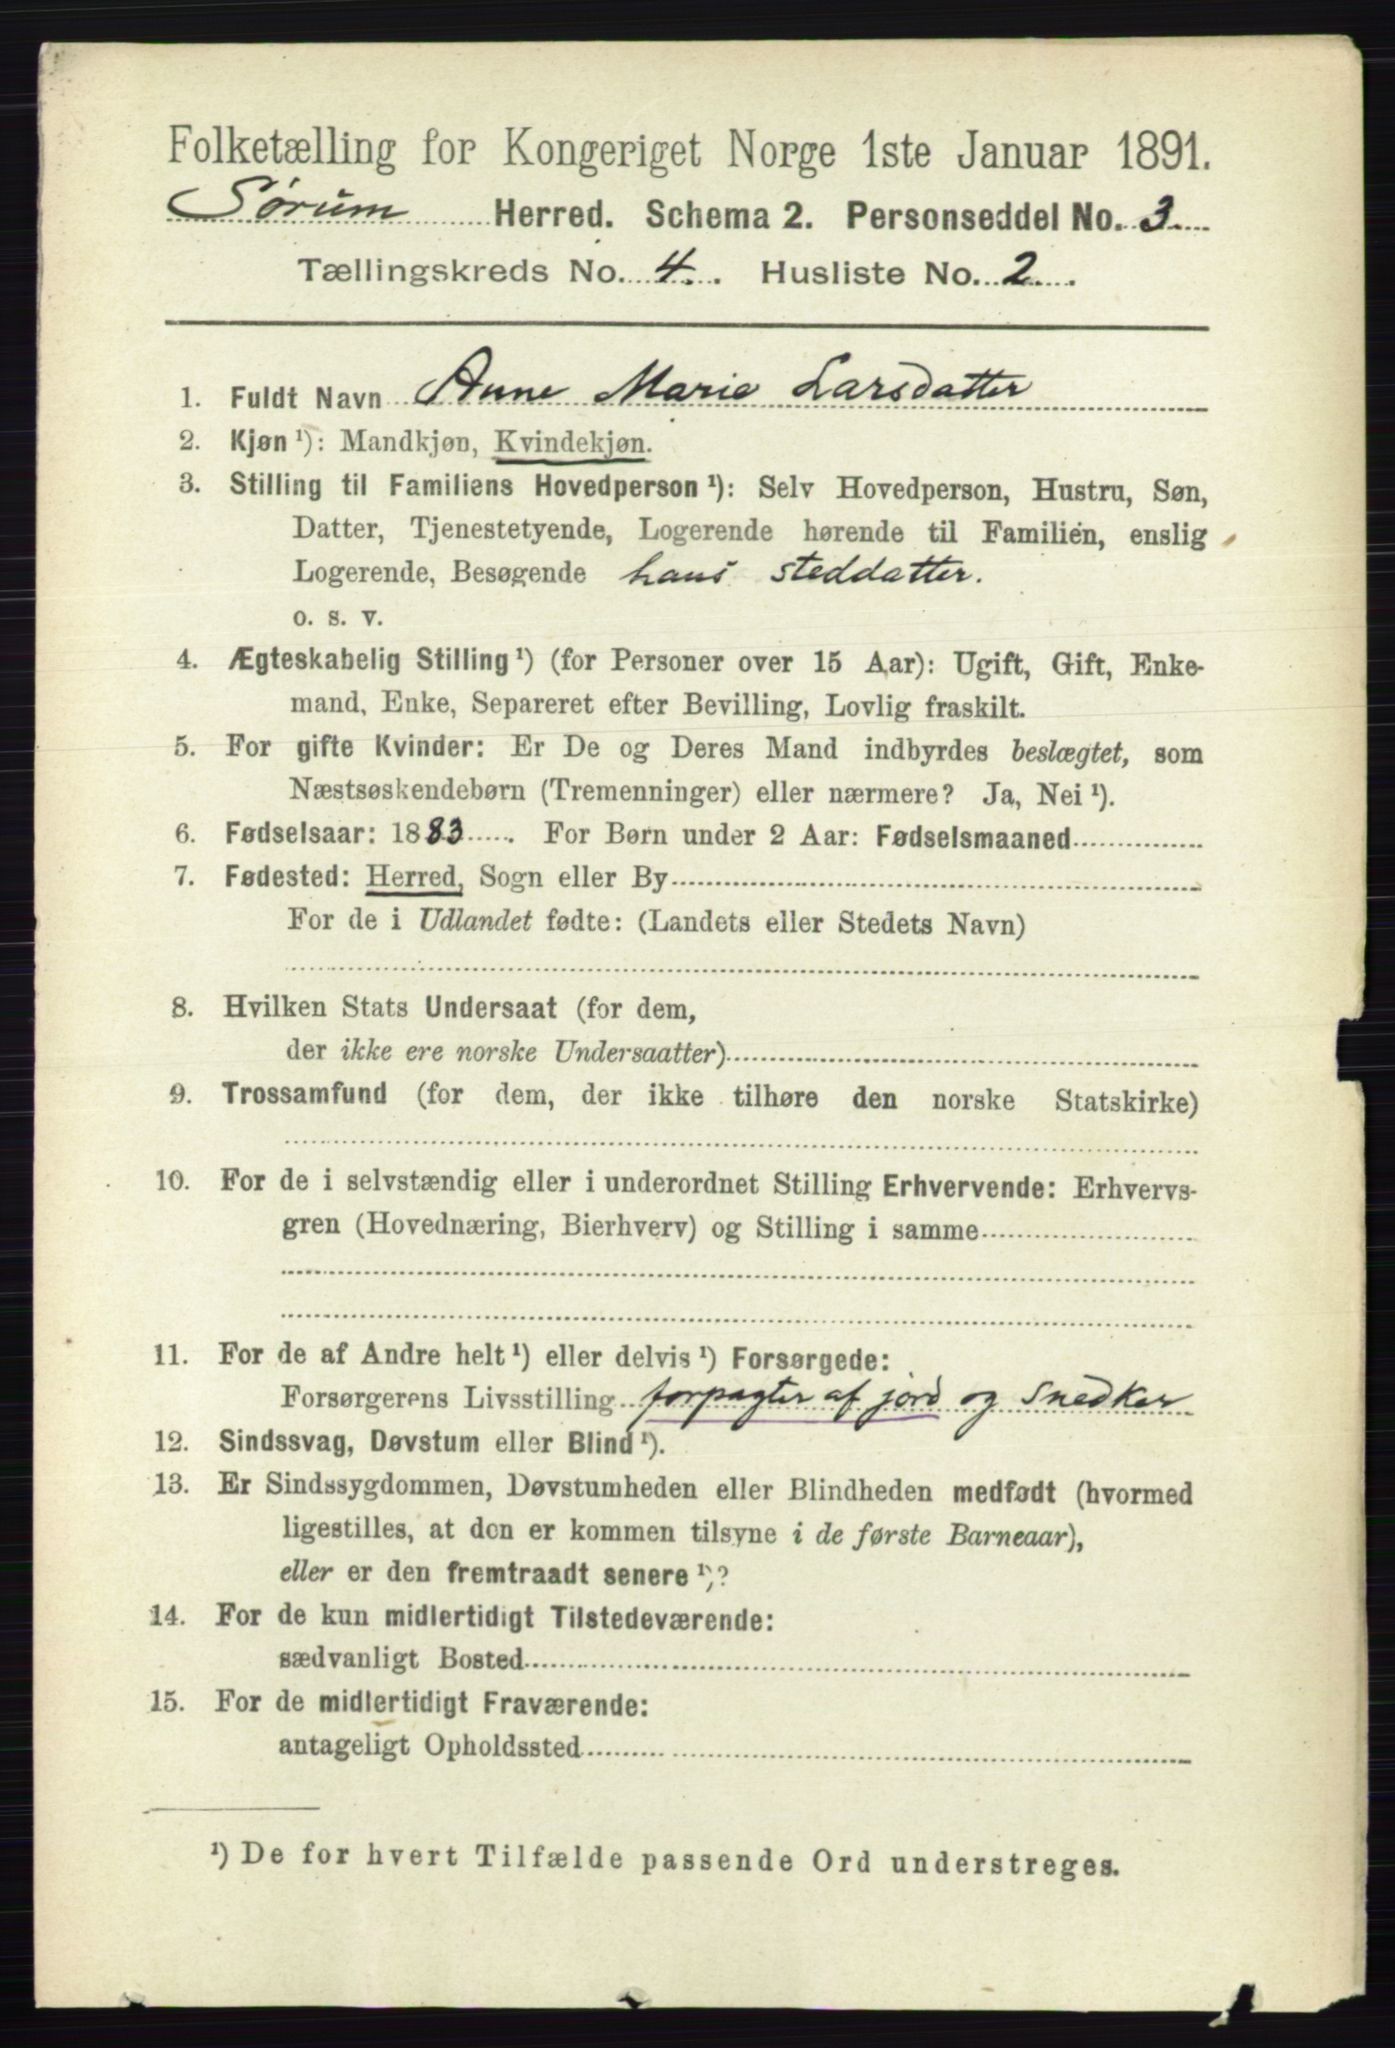 Folketælling for Kongeriget Norge 1ste Januar 1891.
Sørum Herred. Schema 2. Personseddel No. 3.
Tællingskreds No. 4. Husliste No. 2.
1. Fuldt Navn Anne Marie Larsdatter
2. Kjøn ¹): Mandkjøn, Kvindekjøn.
3. Stilling til Familiens Hovedperson ¹): Selv Hovedperson, Hustru, Søn,
Datter, Tjenestetyende, Logerende hørende til Familien, enslig
Logerende, Besøgende hans steddatter.
o. s. v.
4. Ægteskabelig Stilling ¹) (for Personer over 15 Aar): Ugift, Gift, Enke-
mand, Enke, Separeret efter Bevilling, Lovlig fraskilt.
5. For gifte Kvinder: Er De og Deres Mand indbyrdes beslægtet, som
Næstsøskendebørn (Tremenninger) eller nærmere? Ja, Nei ¹).
6. Fødselsaar: 1883. For Børn under 2 Aar: Fødselsmaaned
7. Fødested: Herred, Sogn eller By
For de i Udlandet fødte: (Landets eller Stedets Navn)
8. Hvilken Stats Undersaat (for dem,
der ikke ere norske Undersaatter)
9. Trossamfund (for dem, der ikke tilhøre den norske Statskirke)
10. For de i selvstændig eller i underordnet Stilling Erhvervende: Erhvervs-
gren (Hovednæring, Bierhverv) og Stilling i samme
11. For de af Andre helt ¹) eller delvis ¹) Forsørgede:
Forsørgerens Livsstilling forpagter af jord og Snedker
12. Sindssvag, Døvstum eller Blind ¹).
13. Er Sindssygdommen, Døvstumheden eller Blindheden medfødt (hvormed
ligestilles, at den er kommen tilsyne i de første Barneaar),
eller er den fremtraadt senere ¹)?
14. For de kun midlertidigt Tilstedeværende:
sædvanligt Bosted
15. For de midlertidigt Fraværende:
antageligt Opholdssted
¹) De for hvert Tilfælde passende Ord understreges.